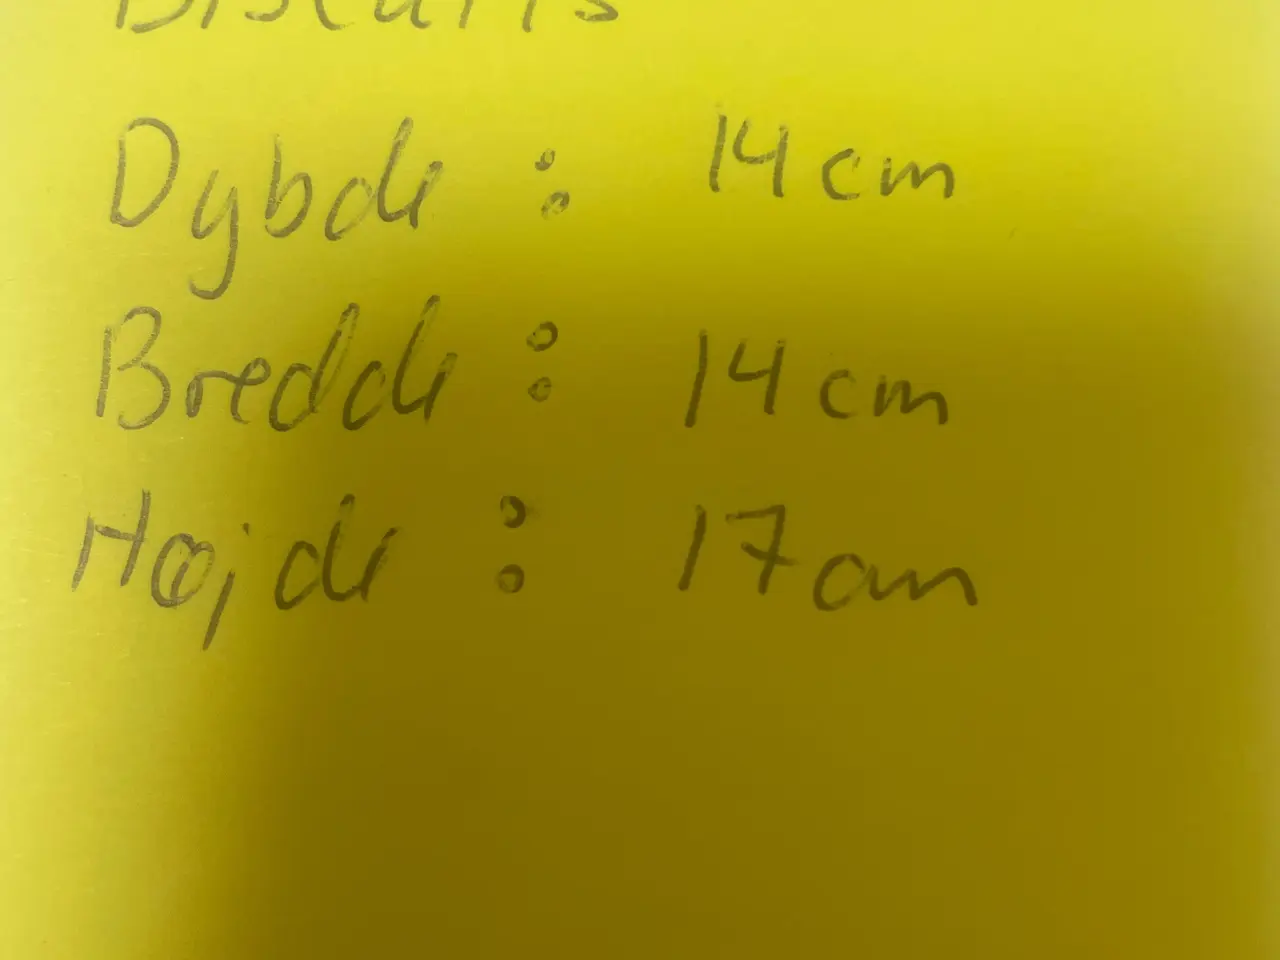 Biscuits
Dybde : 14 cm
Bredde : 14 cm
Højde : 17 cm